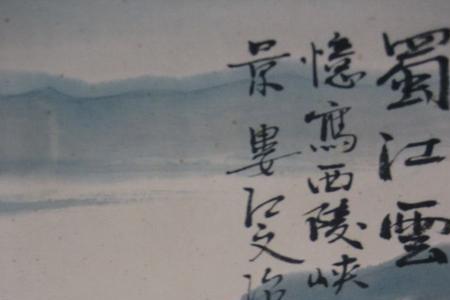 蜀江雲
憶寫西陵峽
景 婁江文